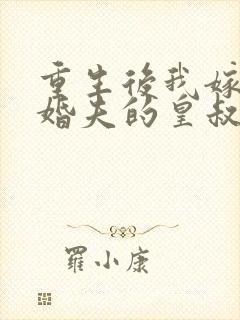 重生後我嫁
婚夫的皇叔
羅小康